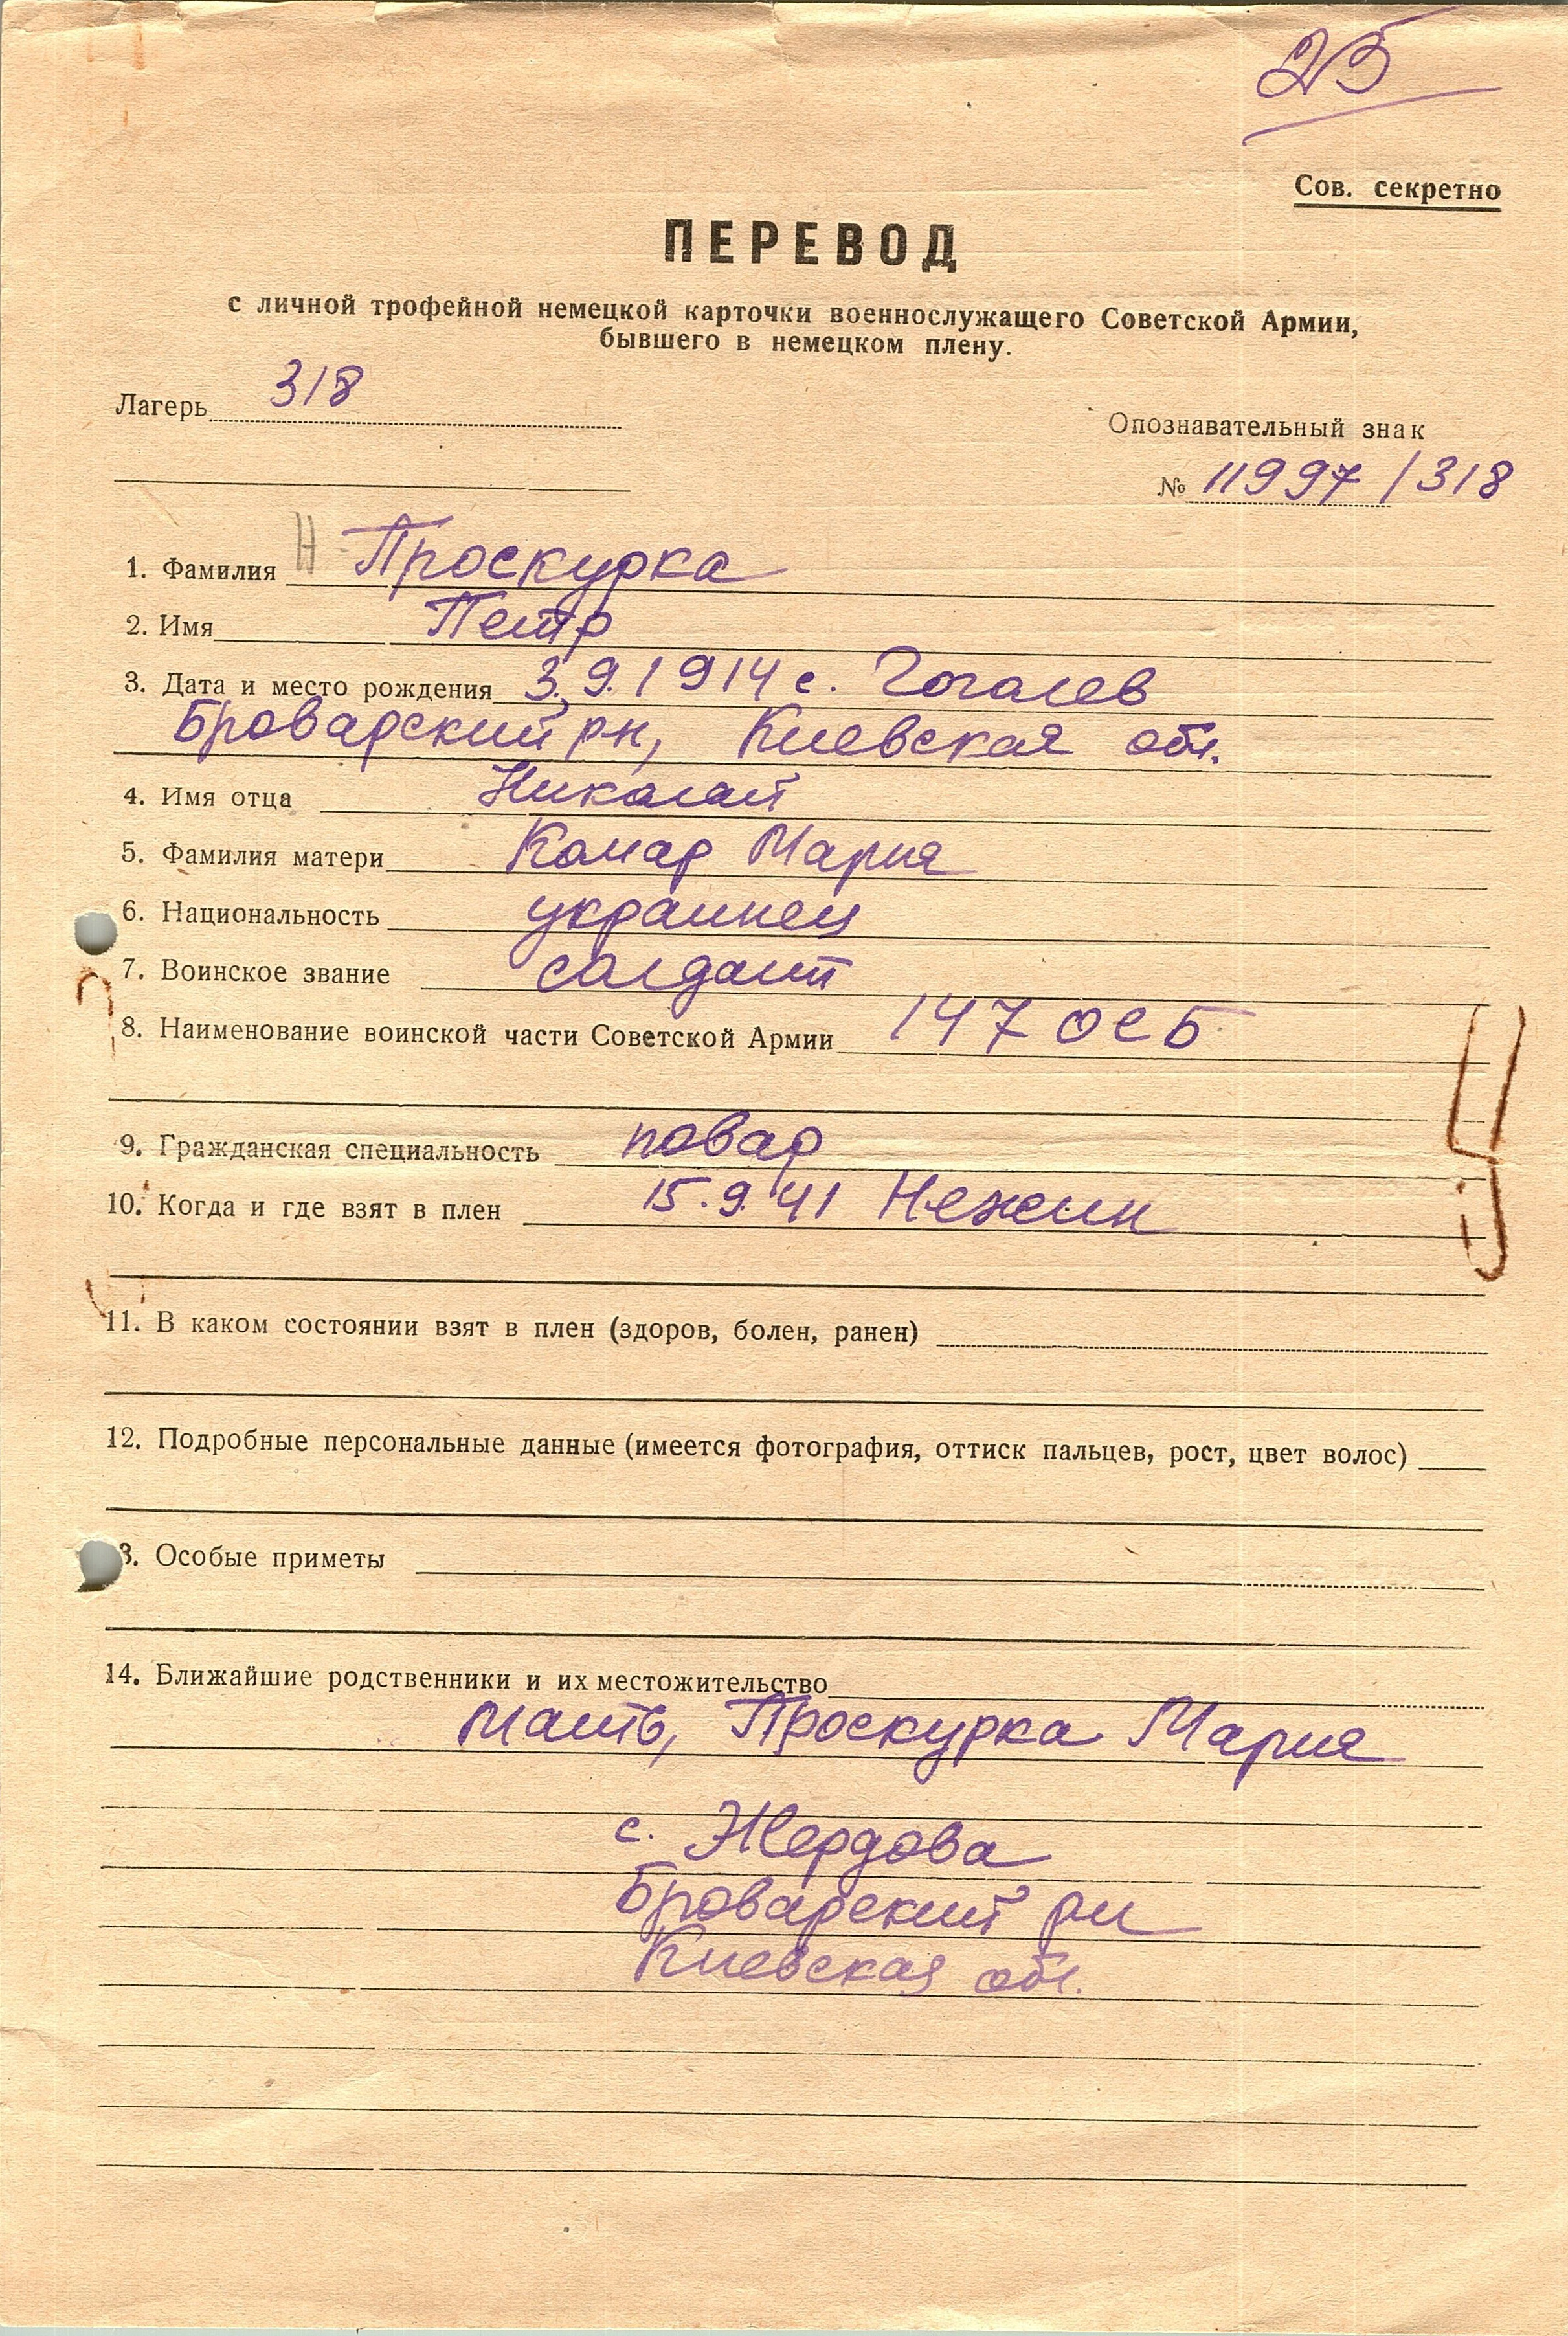 25
Сов. секретно
ПЕРЕВОД
с личной трофейной немецкой карточки военнослужащего Советской Армии,
бывшего в немецком плену.
Лагерь 318
Опознавательный знак
№ 11997/318
1. Фамилия Н Проскурка
2. Имя Петр
3. Дата и место рождения 3.9.1914 с. Гоголев
Броварский рн, Киевская обл.
4. Имя отца Николай
5. Фамилия матери Комар Мария
6. Национальность украинец
7. Воинское звание солдат
8. Наименование воинской части Советской Армии 147 ОСБ
9. Гражданская специальность повар
10. Когда и где взят в плен 15.9.41 Нежин
11. В каком состоянии взят в плен (здоров, болен, ранен)
12. Подробные персональные данные (имеется фотография, оттиск пальцев, рост, цвет волос)
3. Особые приметы
14. Ближайшие родственники и их местожительство
Мать, Проскурка Мария
с. Жердова
Броварский рн
Киевская обл.